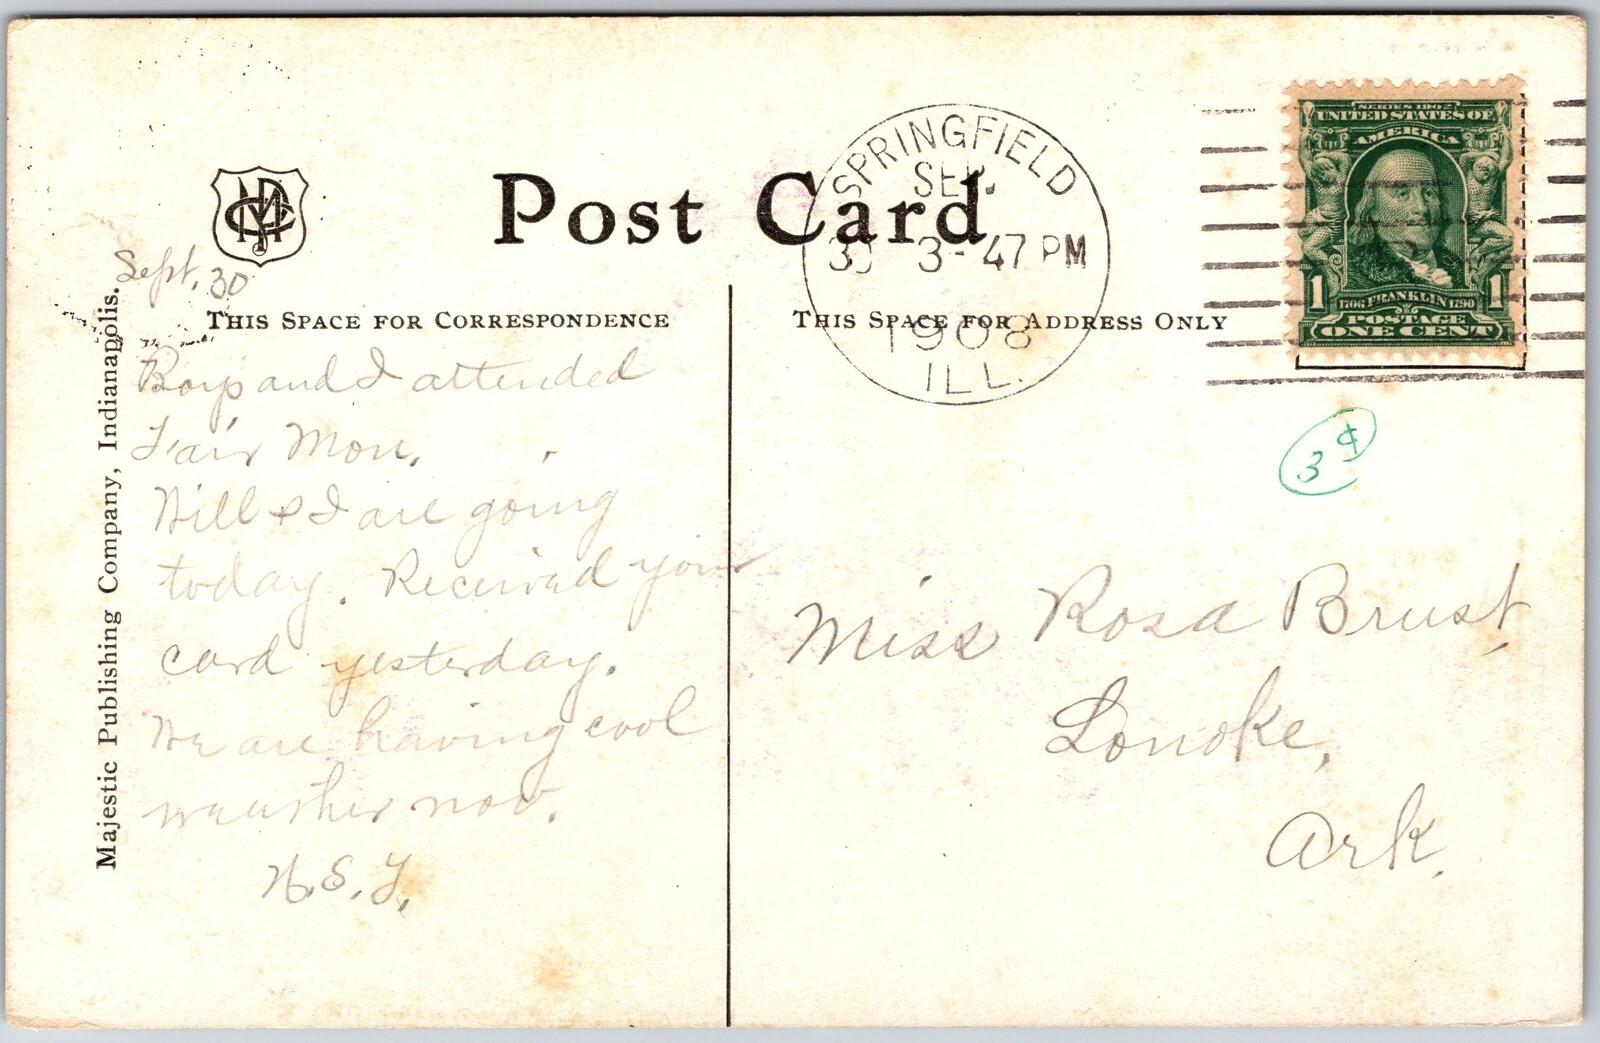 Post Card
SPRINGFIELD
SEP.
30 3-47 PM
1908
ILL.
SERIES 1902
UNITED STATES OF
AMERICA
1 1706 FRANKLIN 1790 1
POSTAGE
ONE CENT
THIS SPACE FOR CORRESPONDENCE
THIS SPACE FOR ADDRESS ONLY
Majestic Publishing Company, Indianapolis.
Sept. 30
Boys and I attended
Fair Mon.
Will & I are going
today. Received your
card yesterday.
We are having cool
weather now.
3¢
Miss Rosa Brust,
Lonoke,
Ark.